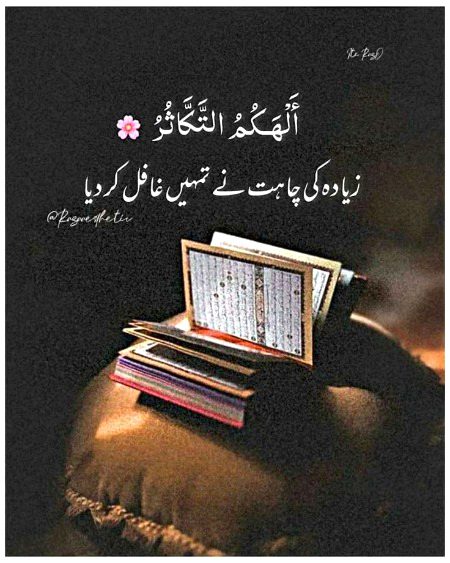 أَلْهَكُمُ التَّكَّاثُرُ 🌸
زیادہ کی چاہت نے تمہیں غافل کر دیا